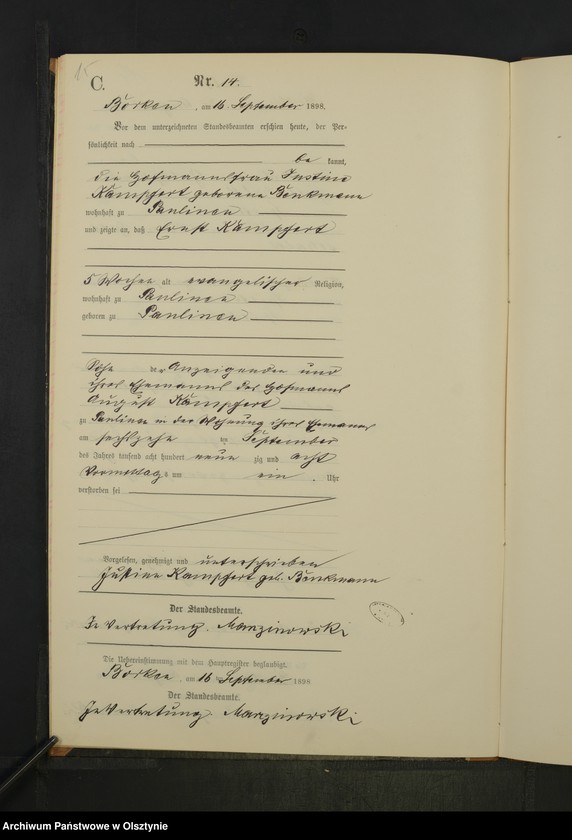 15
C.
Nr. 14.
Borken, am 16. September 1898.
Vor dem unterzeichneten Standesbeamten erschien heute, der Per-
sönlichkeit nach
be kannt,
die Hofmannsfrau Justine
Kampfert geborene Bonkmann
wohnhaft zu Paulinen
und zeigte an, daß Ernst Kampfert
5 Wochen alt evangelischer Religion,
wohnhaft zu Paulinen
geboren zu Paulinen
Sohn der Anzeigenden und
ihres Ehemanns des Hofmanns
August Kampfert
zu Paulinen in der Wohnung ihres Ehemanns
am sechszehn ten September
des Jahres tausend acht hundert neun zig und acht
Vormittags um ein Uhr
verstorben sei
Vorgelesen, genehmigt und unterschrieben
Justine Kampfert geb. Bonkmann
Der Standesbeamte.
In Vertretung. Marzinowski
Die Uebereinstimmung mit dem Hauptregister beglaubigt.
Borken, am 16 ten September 1898
Der Standesbeamte.
In Vertretung Marzinowski
Archiwum Państwowe w Olsztynie